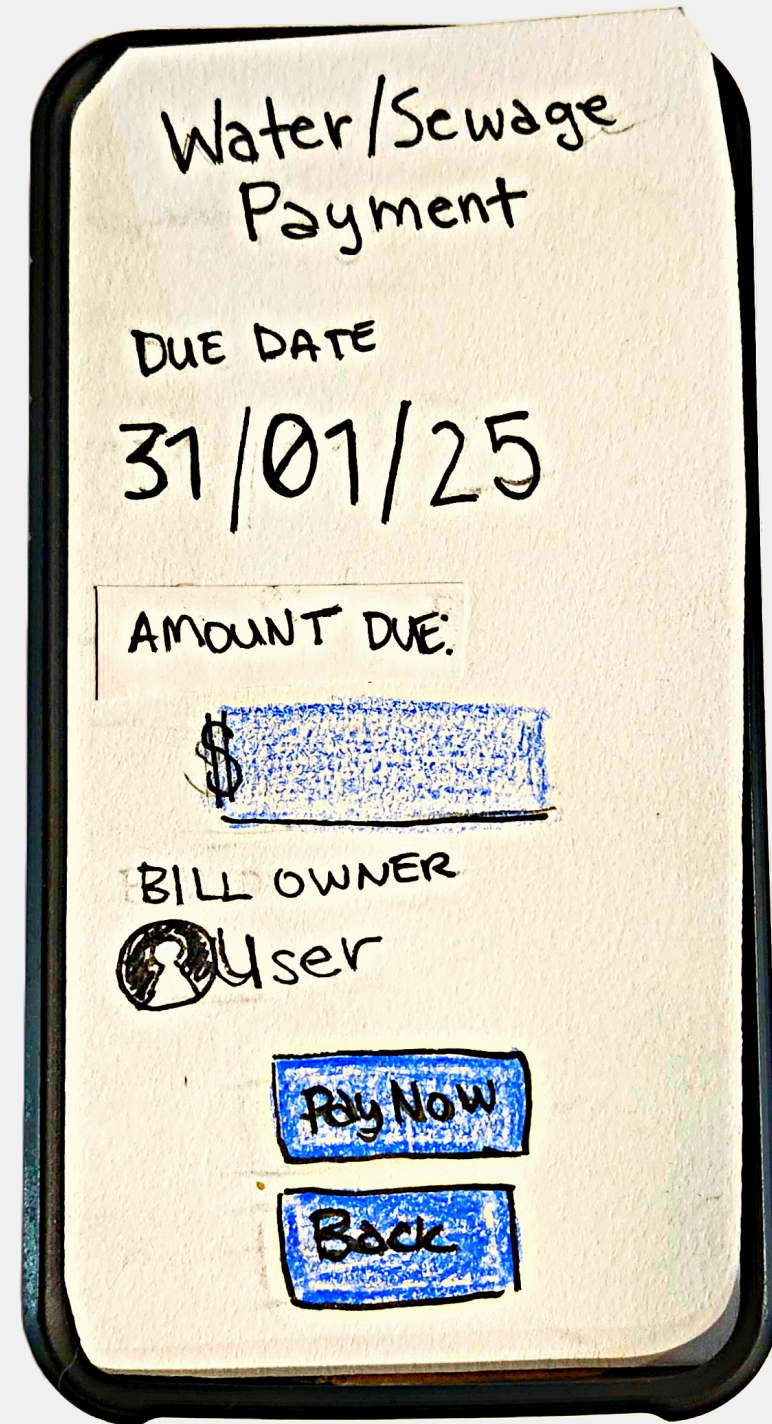 Water/Sewage
Payment
DUE DATE
31/01/25
AMOUNT DUE:
$
BILL OWNER
User
Pay Now
Back